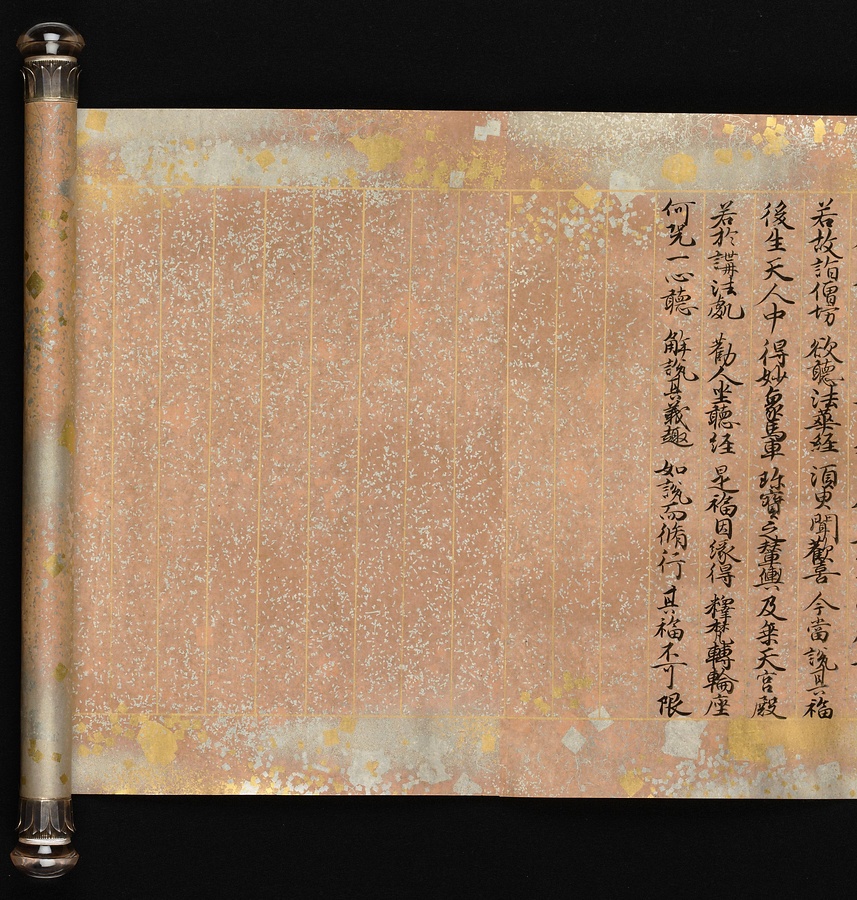 若故詣僧坊 欲聽法華經 須臾聞歡喜 今當說其福
後生天人中 得妙象馬車 珎寶之輦輿 及乗天宮殿
若於講法處 勸人坐聽經 是福因縁得 釋梵轉輪座
何況一心聽 解說其義趣 如說而脩行 其福不可限